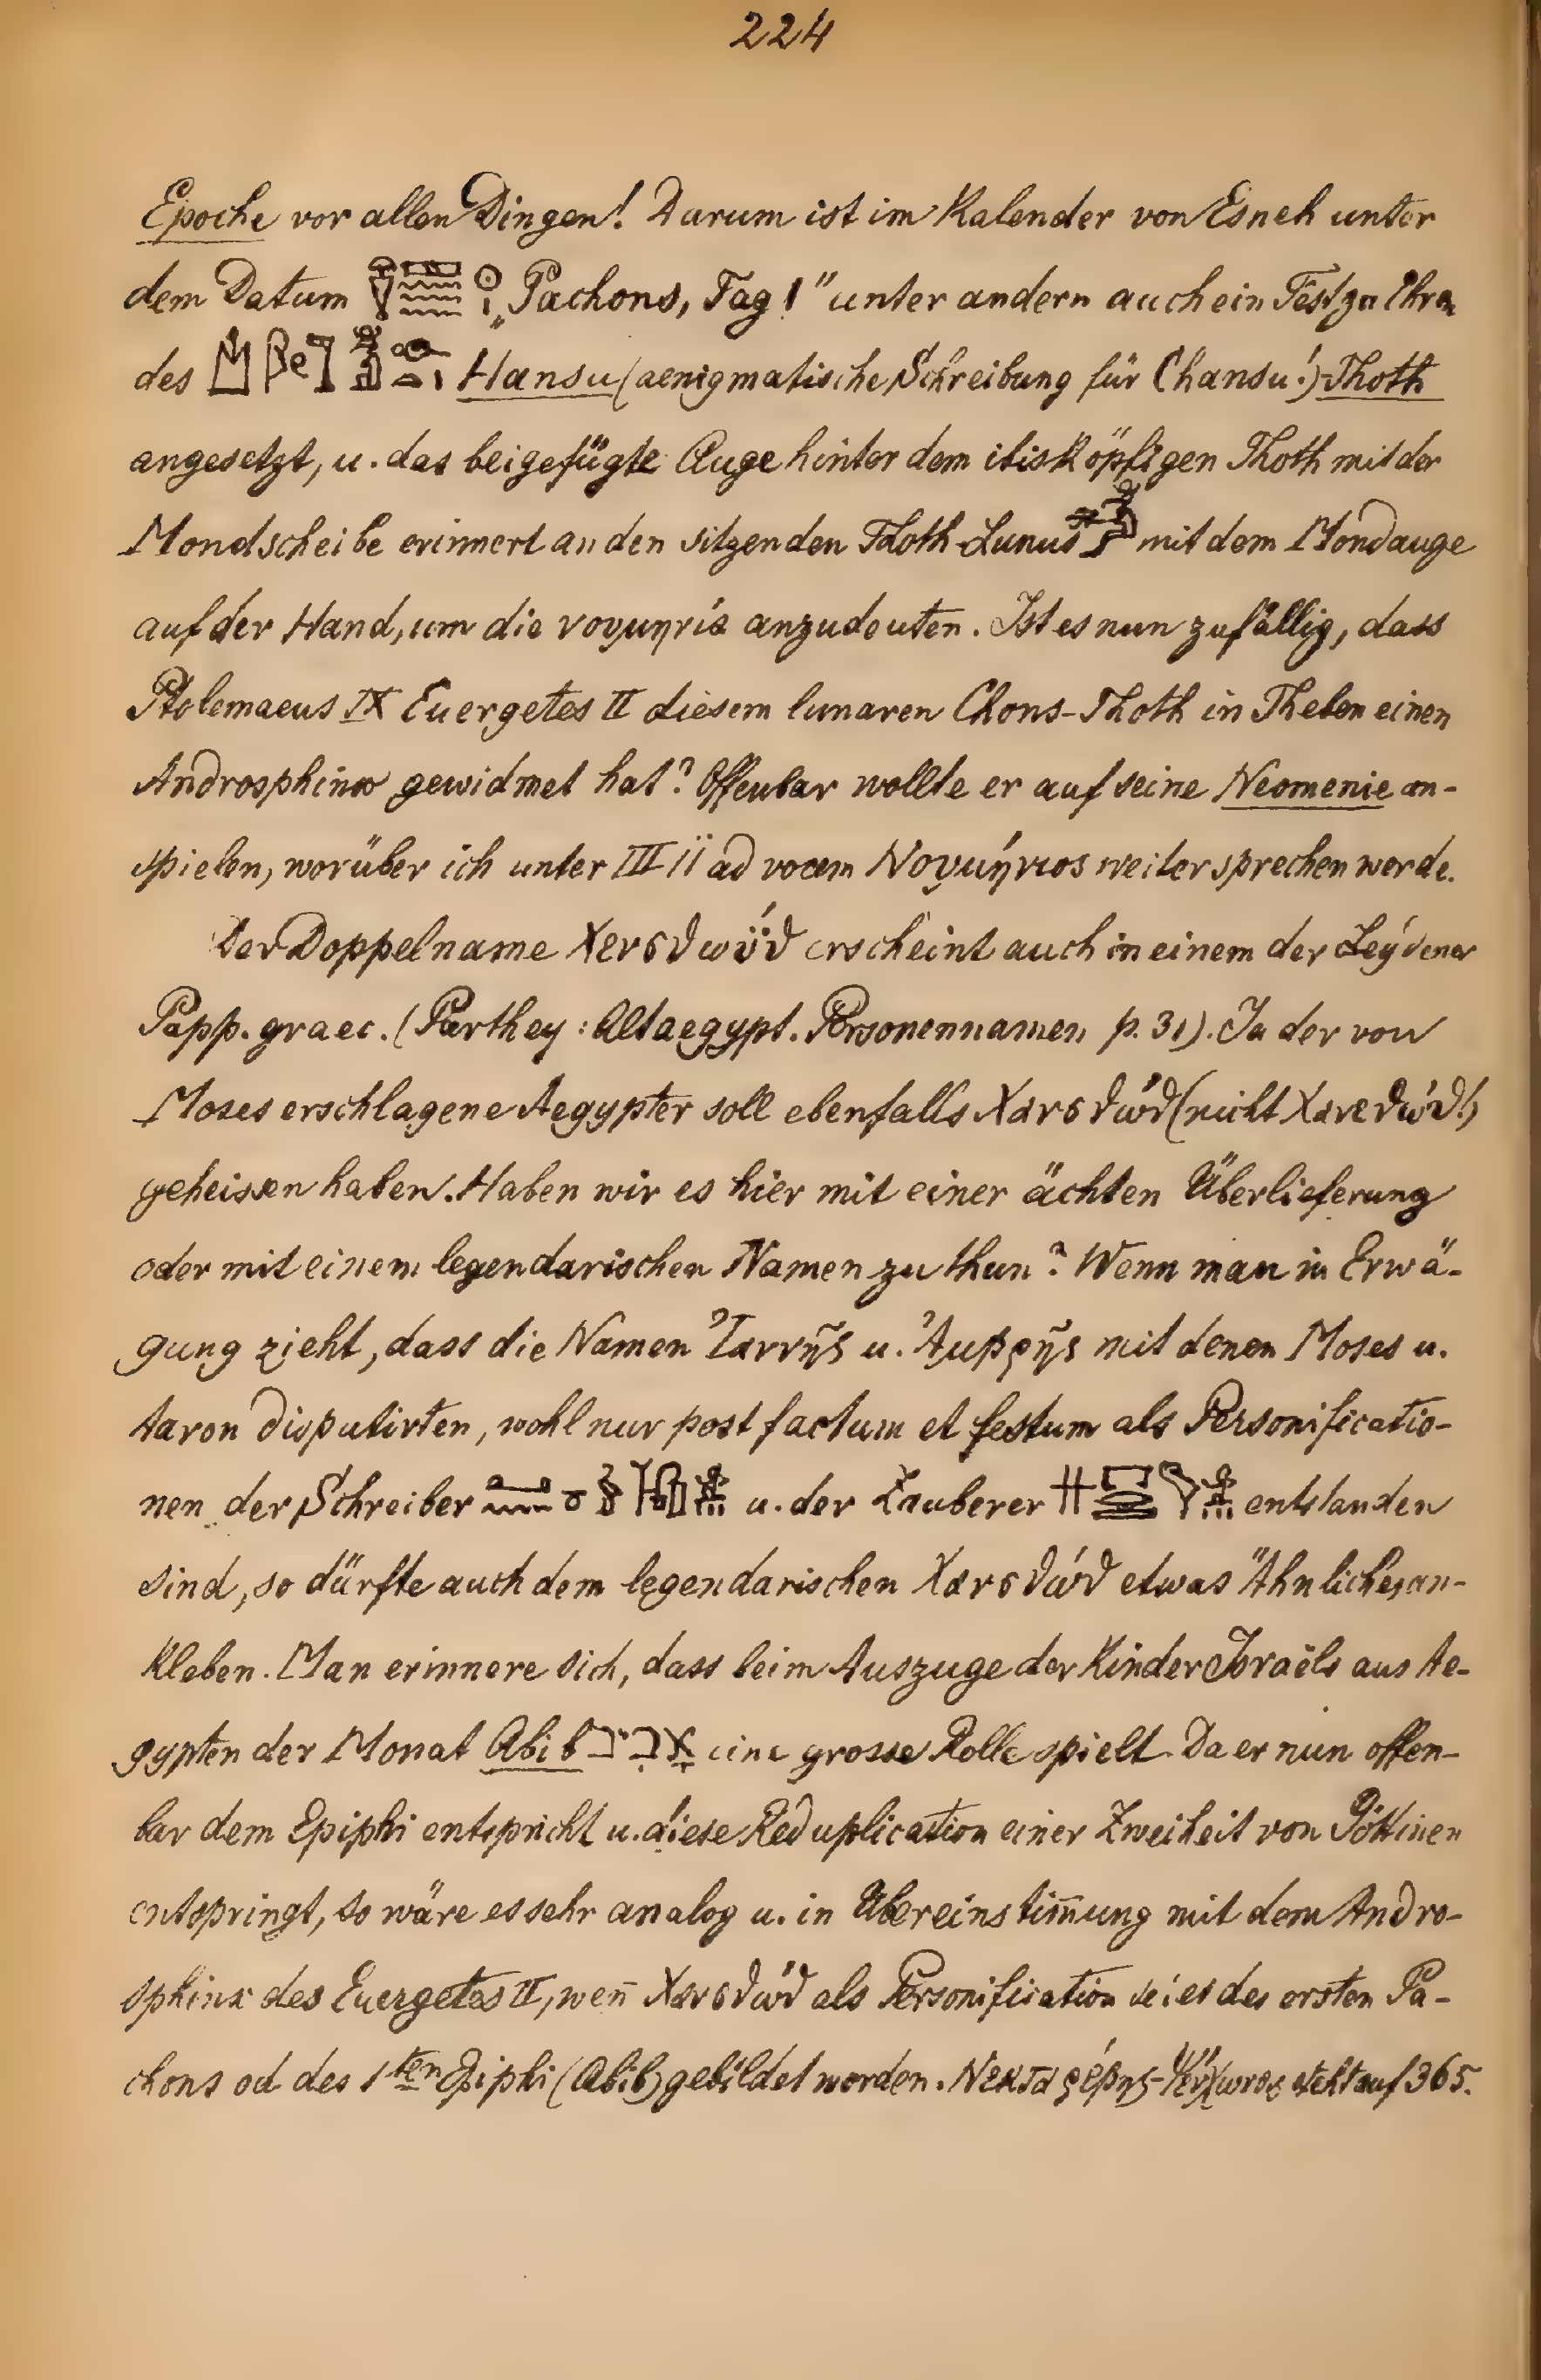 224
Epoche vor allen Dingen! Darum ist im Kalender von Esneh unter
dem Datum „Pachons, Tag 1" unter andern auch ein Fest zu Ehren
des Hansu (aenigmatische Schreibung für Chansu!)-Thoth
angesetzt, u. das beigefügte Auge hinter dem ibisköpfigen Thoth mit der
Mondscheibe erinnert an den sitzenden Thoth-Lunus mit dem Mondauge
auf der Hand, um die νουμηνία anzudeuten. Ist es nun zufällig, dass
Ptolemaeus IX Euergetes II diesem lunaren Chons-Thoth in Theben einen
Androsphinx gewidmet hat? Offenbar wollte er auf seine Neomenie an-
spielen, worüber ich unter III ii ad vocem Νουμήνιος weiter sprechen werde.
Der Doppelname erscheint auch in einem der Leydener
Papp. graec. (Parthey: Altaegypt. Personennamen p. 31). Ja der von
Moses erschlagene Aegypter soll ebenfalls Χανεθώθ (nicht
geheissen haben. Haben wir es hier mit einer ächten Überlieferung
oder mit einem legendarischen Namen zu thun? Wenn man in Erwä-
gung zieht, dass die Namen Ἰαννῆς u. Ἀμβρῆς mit denen Moses u.
Aaron disputirten, wohl nur post factum et festum als Personificatio-
nen der Schreiber u. der Zauberer entstanden
sind, so dürfte auch dem legendarischen Χανεθώθ etwas Ähnliches an-
kleben. Man erinnere sich, dass beim Auszuge der Kinder Israëls aus Ae-
gypten der Monat Abib אביב eine grosse Rolle spielt. Da er nun offen-
bar dem Epiphi entspricht u. diese Reduplication einer Zweiheit von Göttinen
entspringt, so wäre es sehr analog u. in Übereinstim̄ung mit dem Andro-
sphinx des Euergetes II, wen̄ Χανεθώθ als Personification sei es des ersten Pa-
chons od des 1ten Epiphi (Abib) gebildet worden. steht auf 365.